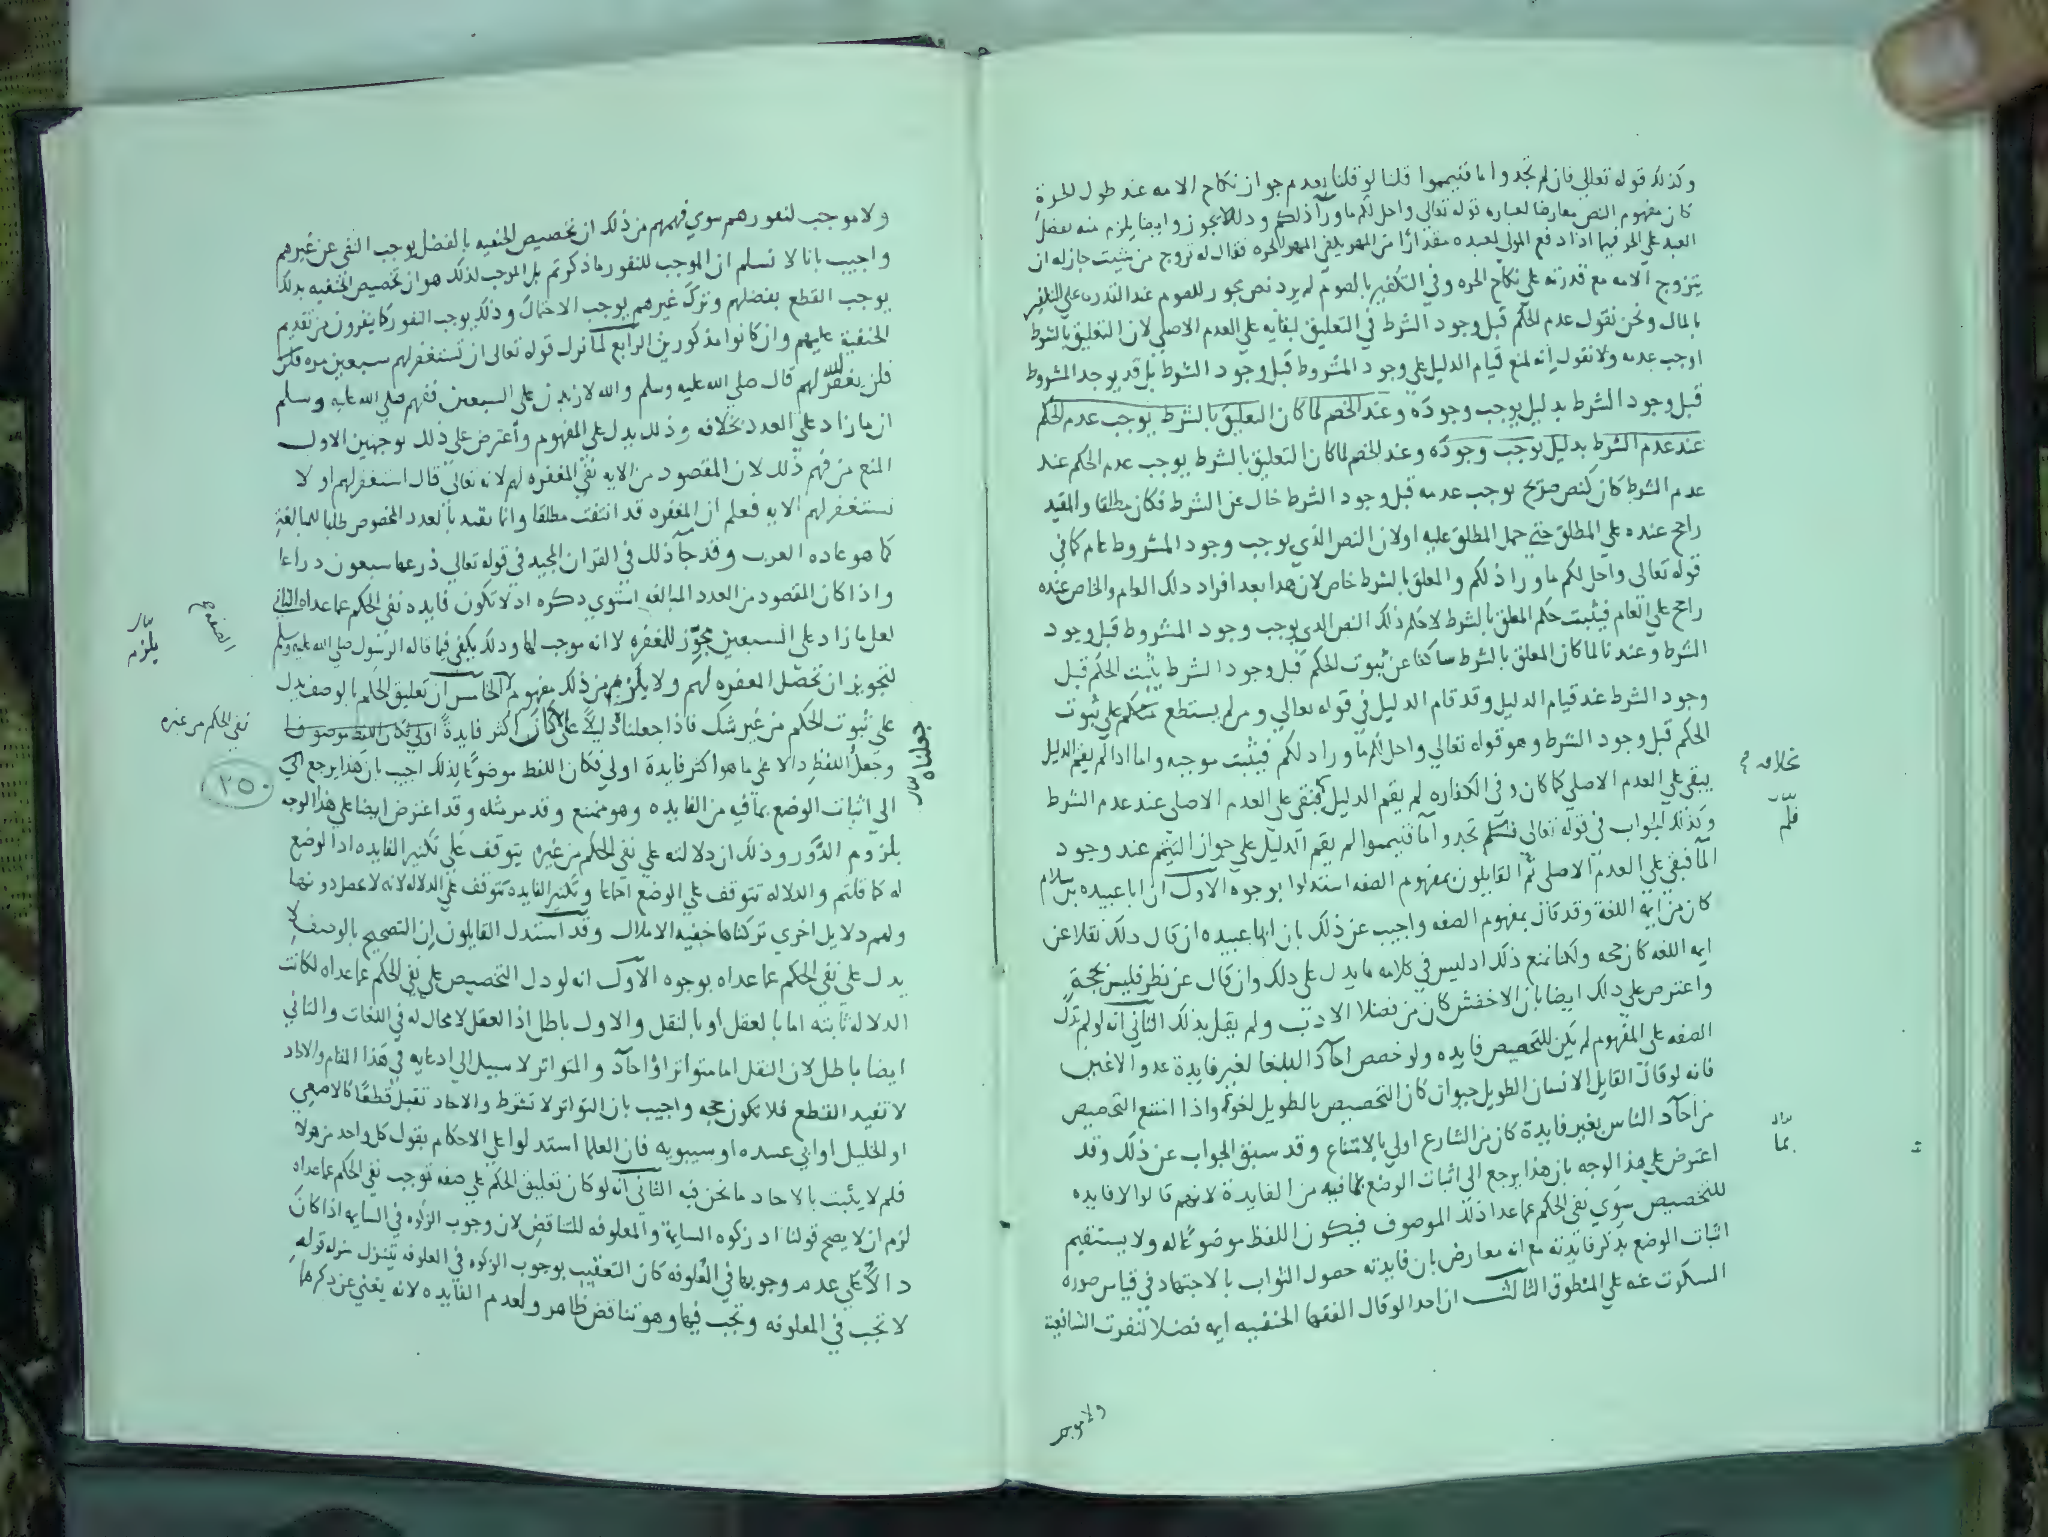 وكذلك قوله تعالي فان لم تجدوا ما فتيمموا قلنا لو قلنا بعدم جواز نكاح الامه عند طول الحرة
كان مفهوم النص معارضا لعباره قوله تعالى واحل لكم ما ورآ ذلكم وذلك لا يجوز وايضا يلزم منه بفضل
العبد علي الحر فيما اذا دفع المولى لعبده مقدارًا من المهر يكفي المهر الحره فقال له تزوج من شيت جاز له ان
يتزوج الامه مع قدرته على نكاح الحره وفي التكفير بالصوم لم يرد نص يجوز للصوم عند القدره علي التكفير
بالمال ونحن نقول عدم الحكم قبل وجود الشرط في التعليق لبقآيه علي العدم الاصلي لان التعليق بالشرط
اوجب عدمه ولا نقول انه لمنع قيام الدليل علي وجود المشروط قبل وجود الشرط بل قد يوجد المشروط
قبل وجود الشرط بدليل يوجب وجوده وعند الخصم لما كان التعليق بالشرط يوجب عدم الحكم
عند عدم الشرط بدليل يوجب وجوده وعند الخصم لما كان التعليق بالشرط يوجب عدم الحكم عند
عدم الشرط كان كنص صريح يوجب عدمه قبل وجود الشرط خال عن الشرط فكان مطلقا والمقيد
راجح عنده علي المطلق حتى حمل المطلق عليه اولان النص الذي يوجب وجود المشروط عام كما في
قوله تعالى واحل لكم ما ورا ذلكم والمعلق بالشرط خاص لان هذا بعد افراد ذلك العام والخاص عنده
راجح علي العام فيثبت حكم المعلق بالشرط لا حكم ذلك النص الذي يوجب وجود المشروط قبل وجود
الشرط وعندنا لما كان المعلق بالشرط ساكتا عن ثبوت الحكم قبل وجود الشرط يثبت الحكم قبل
وجود الشرط عند قيام الدليل وقد قام الدليل في قوله تعالي ومن لم يستطع منكم علي ثبوت
الحكم قبل وجود الشرط وهو قوله تعالي واحل لكم ما ورا ذلكم فيثبت موجبه واما اذا لم يقم الدليل
يبقى علي العدم الاصلي كما كان وفي الكفاره لم يقم الدليل فبقي علي العدم الاصلي عند عدم الشرط
بخلافه صح
وكذلك الجواب في قوله تعالى فلم تجدوا مآ فتيمموا لم يقم الدليل علي جواز التيمم عند وجود
فلم
المآ فبقي علي العدم الاصلي ثم القايلون بمفهوم الصفه استدلوا بوجوه الاول ان ابا عبيده بن سلام
كان من ايمه اللغة وقد قال بمفهوم الصفه واجيب عن ذلك بان ابا عبيده ان قال ذلك نقلا عن
ايمه اللغه كان حجه ولكنا نمنع ذلك اذ ليس في كلامه ما يدل علي ذلك وان قال عن نظر فليس بحجة
واعترض علي ذلك ايضا بان الاخفش كان من فضلا الادب ولم يقل بذلك الثاني انه لو لم تدل
الصفه على المفهوم لم يكن للتخصيص فايده ولو خصص احآد البلغا لغير فايدة عدو الاغين
فانه لو قال القايل الانسان الطويل حيوان كان التخصيص بالطويل لغوا واذا امتنع التخصيص
من احآد الناس بغير فايدة كان من الشارع اولي بالامتناع وقد سبق الجواب عن ذلك وقد
اعترض علي هذا الوجه بان هذا يرجع الى اثبات الوضع بما فيه من الفايدة لانهم قالوا لا فايده
بما
للتخصيص سوي نفى الحكم عما عدا ذلك الموصوف فيكون اللفظ موضوعًا له ولا يستقيم
اثبات الوضع بذكر فايدته مع انه معارض بان فايدته حصول الثواب بالاجتهاد في قياس صوره
المسكوت عنه علي المنطوق الثالث ان احدا لو قال الفقها الحنفيه ايمه فضلا لنفرت الشافعية
ولا موجب
ولا موجب لنفورهم سوي فهمهم من ذلك ان تخصيص الحنفيه بالفضل يوجب النفي عن غيرهم
واجيب بانا لا نسلم ان الموجب للنفور ما ذكرتم بل الموجب لذلك هو ان تخصيص الحنفيه بذلك
يوجب القطع بفضلهم وترك غيرهم يوجب الاحتمال وذلك يوجب النفور كما ينفرون من تقديم
الحنفية عليهم وان كانوا مذكورين الرابع لما نزل قوله تعالى ان تستغفر لهم سبعين مره فلن
فلن يغفر الله لهم قال صلي الله عليه وسلم والله لازيدن على السبعين ففهم صلي الله عليه وسلم
ان ما زاد علي العدد بخلافه وذلك يدل علي المفهوم واعترض على ذلك بوجهين الاول
المنع من فهم ذلك لان المقصود من الايه نفي المغفره لهم لانه تعالى قال استغفر لهم او لا
تستغفر لهم الايه فعلم ان المغفره قد انتفت مطلقا وانما يقيد بالعدد المخصوص طلبا للمبالغة
كما هو عاده العرب وقد جآ ذلك في القران المجيد في قوله تعالي ذرعها سبعون ذراعا
واذا كان المقصود من العدد المبالغه استوي ذكره اذ لا تكون فايده نفى الحكم عما عداه الثاني
لعل ما زاد على السبعين مجوّز للمغفره لا انه موجب لها وذلك يكفي فيما قاله الرسول صلي الله عليه وسلم
لتجويز ان تحصل المغفره لهم ولا يلزم من ذلك مفهوم الخامس ان تعليق الحكم بالوصف يدل
الصفه صح
يلزم
على ثبوت الحكم من غير شك فاذا جعلناه دليلا على كان اكثر فايدة اولى فكان اللفظ موصوفا
نفى الحكم من غيره
جعلناه
وجعل اللفظ دالا على ما هو اكثر فايدة اولي فكان اللفظ موضوعًا لذلك اجيب بان هذا يرجع الي
٢٥٠
الي اثبات الوضع بما فيه من الفايده وهو ممتنع وقد مر مثله وقد اعترض ايضا علي هذا الوجه
بلزوم الدور وذلك ان دلالته علي نفى الحكم من غيره يتوقف على تكثير الفايده اذ الوضع
له كما قلتم والدلاله تتوقف علي الوضع وتكثير الفايده تتوقف علي الدلاله لانه لا تحصل دونها
ولهم دلايل اخري تركناها خفيه الاملال وقد استدل القايلون ان التصحيح بالوصف
يدل على نفى الحكم عما عداه بوجوه الاول انه لو دل التخصيص علي نفي الحكم عما عداه لكانت
الدلاله ثابته اما بالعقل او بالنقل والاول باطل اذ العقل لا مجال له في اللغات والثاني
ايضا باطل لان النقل اما متواتر او احآد والمتواتر لا سبيل الي ادعايه في هذا المقام والاحاد
لا تفيد القطع فلا تكون حجه واجيب بان التواتر لا تشرط والاحاد تقبل قطعًا كالاصمعي
او الخليل او ابي عبيده او سيبويه فان العلما استدلوا علي الاحكام بقول كل واحد من هولا
فلم لا يثبت بالاحاد ما نحن فيه الثاني انه لو كان تعليق الحكم علي صفه توجب نفي الحكم عما عداه
لزم ان لا يصح قولنا اد زكوه السايمة والمعلوفه للتناقض لان وجوب الزكوه في السايمه اذا كان
دالاً علي عدم وجوبها في المعلوفه كان التعقيب بوجوب الزكوه في العلوفه يتنزل منزله قوله
لا تجب في المعلوفه وتجب فيها وهو تناقض ظاهر ولعدم الفايده لانه يغني عن ذكرها